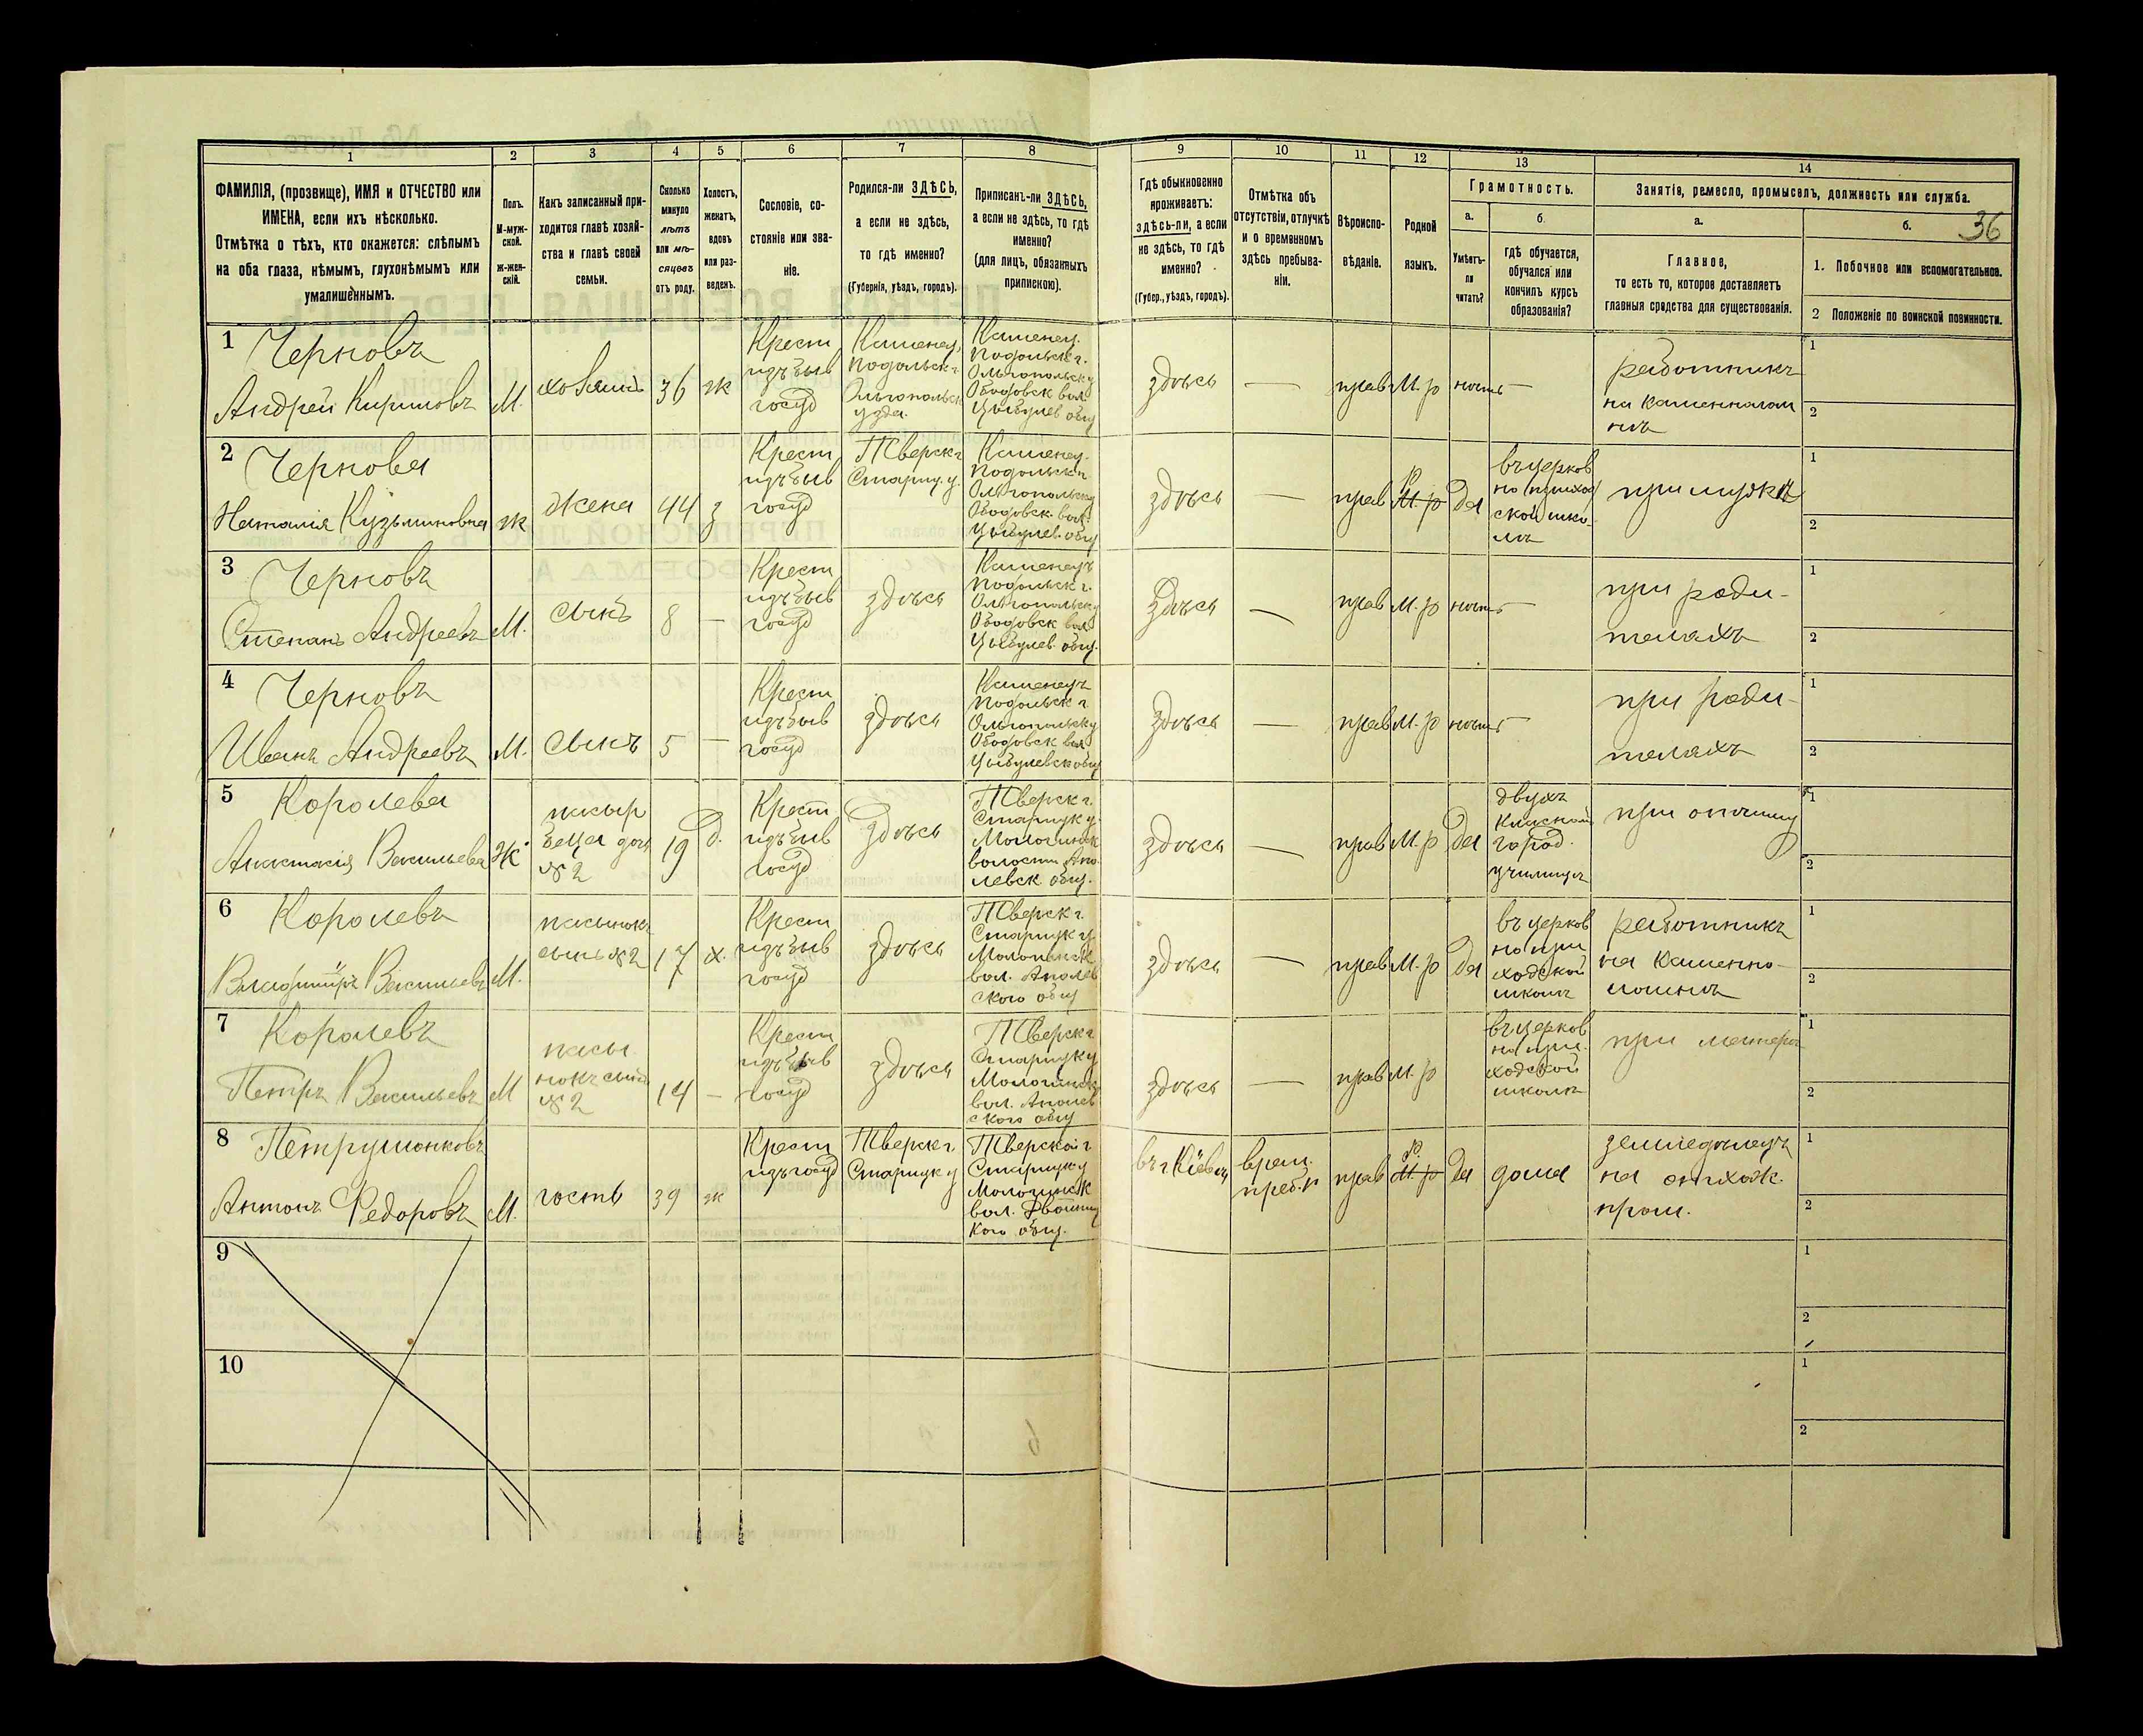 1 2 3 4 5 6 7 8 9 10 11 12 13 14
ФАМИЛІЯ, (прозвище), ИМЯ и ОТЧЕСТВО или
ИМЕНА, если ихъ нѣсколько.
Отмѣтка о тѣхъ, кто окажется: слѣпымъ
на оба глаза, нѣмымъ, глухонѣмымъ или
умалишеннымъ.
Полъ.
М-муж-
ской.
Ж-жен-
скій.
Какъ записанный при-
ходится главѣ хозяй-
ства и главѣ своей
семьи.
Сколько
минуло
лѣтъ
или мѣ-
сяцевъ
отъ роду.
Холостъ,
женатъ,
вдовъ
или раз-
веденъ.
Сословіе, со-
стояніе или зва-
ніе.
Родился-ли ЗДѢСЬ,
а если не здѣсь,
то гдѣ именно?
(Губернія, уѣздъ, городъ).
Приписанъ-ли ЗДѢСЬ,
а если не здѣсь, то гдѣ
именно?
(для лицъ, обязанныхъ
припискою).
Гдѣ обыкновенно
проживаетъ:
здѣсь-ли, а если
не здѣсь, то гдѣ
именно?
(Губер., уѣздъ, городъ).
Отмѣтка объ
отсутствіи, отлучкѣ
и о временномъ
здѣсь пребыва-
ніи.
Вѣроиспо-
вѣданіе.
Родной
языкъ.
Грамотность.
а.
Умѣетъ-
ли
читать?
б.
гдѣ обучается,
обучался или
кончилъ курсъ
образованія?
Занятіе, ремесло, промыселъ, должность или служба.
а.
Главное,
то есть то, которое доставляетъ
главныя средства для существованія.
б. 36
1. Побочное или вспомогательное.
2 Положеніе по воинской повинности.
1
Черновъ
Андрей Кириловъ
М.
хозяинъ
36
ж
Крест
изъ быв
госуд
Каменец.
Подольск г.
Ольгопольск
уѣзда.
Каменец.
Подольск г.
Ольгопольск у
Ободовск вол.
Цыбулев общ
здѣсь
—
прав
М. р
нѣтъ
—
работникъ
на каменнолом
нѣ
1
2
2
Чернова
Наталія Кузьминовна
ж
жена
44
з
Крест
изъ быв
госуд
Тверск г
Стариц. у.
Каменец.
Подольск г.
Ольгопольск у
Ободовск. вол.
Цыбулев. общ
здѣсь
—
прав
Р
М. р
да
въ церков
но приход
ской шко-
лѣ
при мужѣ
1
2
3
Черновъ
Степанъ Андреевъ
М.
сынъ
8
—
Крест
изъ быв
госуд
здѣсь
Каменецъ
Подольск г.
Ольгопольск у
Ободовск вол.
Цыбулев. общ.
здѣсь
—
прав
М. р
нѣтъ
—
при роди-
теляхъ
1
2
4
Черновъ
Иванъ Андреевъ
М.
сынъ
5
—
Крест
изъ быв
госуд
здѣсь
Каменецъ
Подольск г
Ольгопольск у
Ободовск вол.
Цыбулевск общ
здѣсь
—
прав
М. р
нѣтъ
—
при роди-
теляхъ
1
2
5
Королева
Анастасія Васильева
Ж
падчер
дочь
№ 2
19
д.
Крест
изъ быв
госуд
здѣсь
Тверск г.
Старицк у.
Мологинск
волости
левск. общ.
здѣсь
—
прав
М. р
да
двухъ
класной
город.
училищѣ
при отчиму
1
2
6
Королевъ
Владиміръ Васильевъ
М.
пасынокъ
сынъ № 2
17
х.
Крест
изъ быв
госуд
здѣсь
Тверск г.
Старицк у.
Мологинск
вол. Аполев
ского общ
здѣсь
—
прав
М. р
да
въ церков
но при
ходской
школѣ
работникъ
на каменно-
ломнѣ
1
2
7
Королевъ
Петръ Васильевъ
М
пасы
нокъ сынъ
№ 2
14
—
Крест
изъ быв
госуд
здѣсь
Тверск г
Старицк у
Мологинск
вол. Аполев
ского общ
здѣсь
—
прав
М. р
въ церков
но при.
ходской
школѣ
при матери
1
2
8
Петрушонковъ
Антонъ Федоровъ
М.
гость
39
ж
Крест
изъ госуд
Тверск г.
Старицк у
Тверской г
Старицк у
Мологинск
вол.
кого общ.
въ г Кіевѣ
врем.
преб.
прав
Р.
М. р
да
дома
земледѣлецъ
на отхож.
пром.
1
2
9
1
2
10
1
2